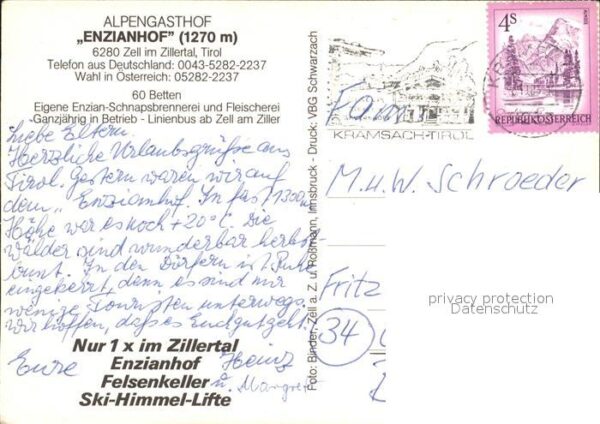 ALPENGASTHOF
„ENZIANHOF" (1270 m)
6280 Zell im Zillertal, Tirol
Telefon aus Deutschland: 0043-5282-2237
Wahl in Österreich: 05282-2237
60 Betten
Eigene Enzian-Schnapsbrennerei und Fleischerei
-Ganzjährig in Betrieb - Linienbus ab Zell am Ziller
Liebe Eltern.
Herzliche Urlaubsgrüsse aus
Tirol. Gestern waren wir auf
dem „Enzianhof. In fast 1300m
Höhe war es noch +20°C. Die
Wälder sind wunderbar herbst-
bunt. In den Dörfern ist Ruhe
eingekehrt, denn es sind nur
wenige Touristen unterwegs.
Wir hoffen, dass es Euch gut geht.
Eure Heinz
u. Margret
Nur 1 x im Zillertal
Enzianhof
Felsenkeller
Ski-Himmel-Lifte
Foto: Binder, Zell a. Z. u. Roßmann, Innsbruck - Druck: VBG Schwarzach
KRAMSACH-TIROL
4S
REPUBLIK ÖSTERREICH
Fam.
M.u.W. Schroeder
Fritz
34
privacy protection
Datenschutz